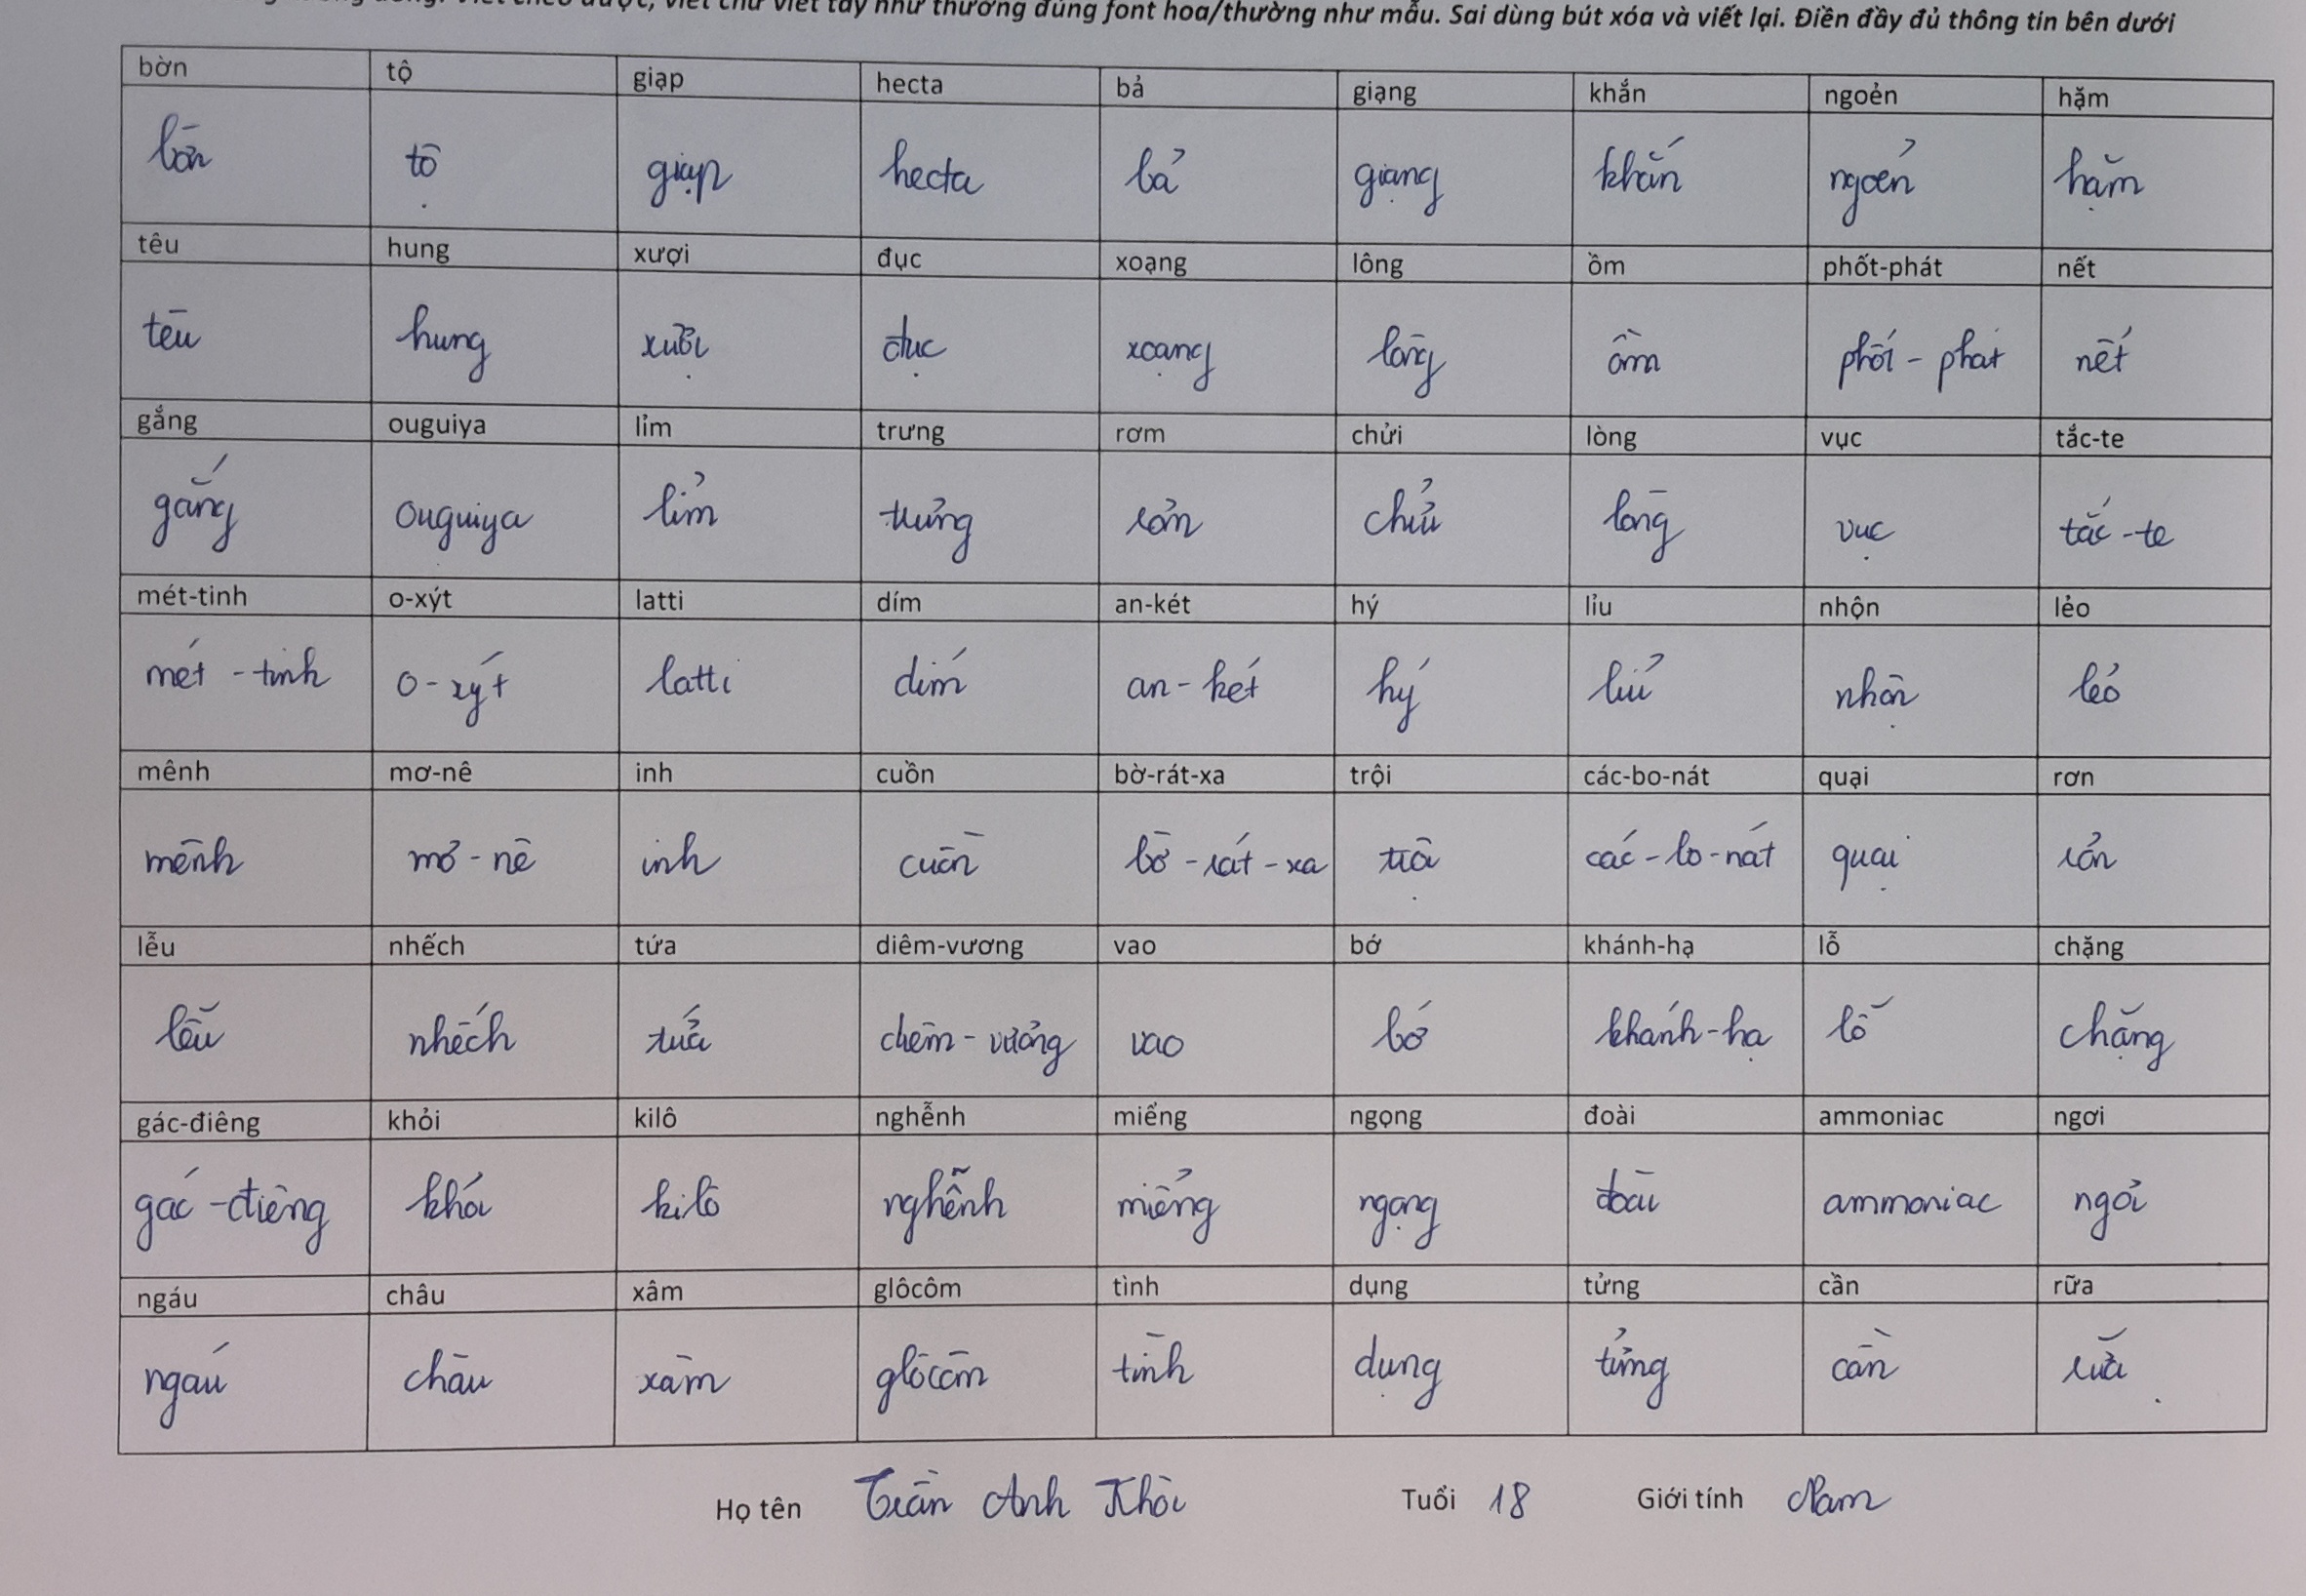 viết chữ viết tay như thường đúng font hoa/thường như mẫu. Sai dùng bút xóa và viết lại. Điền đầy đủ thông tin bên dưới
bờn tộ giạp hecta bả giạng khắn ngoẻn hặm
bờn tộ giạp hecta bả giạng khắn ngoẻn hặm
têu hung xượi đục xoạng lông ồm phốt-phát nết
têu hung xượi đục xoạng lông ồm phốt-phát nết
gắng ouguiya lỉm trưng rơm chửi lòng vục tắc-te
gắng ouguiya lỉm trưng rơm chửi lòng vục tắc-te
mét-tinh o-xýt latti dím an-két hý lỉu nhộn lẻo
mét-tinh o-xýt latti dím an-két hý lỉu nhộn lẻo
mênh mơ-nê inh cuồn bờ-rát-xa trội các-bo-nát quại rơn
mênh mơ-nê inh cuồn bờ-rát-xa trội các-bo-nát quại rơn
lễu nhếch tứa diêm-vương vao bớ khánh-hạ lỗ chặng
lễu nhếch tứa diêm-vương vao bớ khánh-hạ lỗ chặng
gác-điêng khỏi kilô nghễnh miểng ngọng đoài ammoniac ngơi
gác-điêng khỏi kilô nghễnh miểng ngọng đoài ammoniac ngơi
ngáu châu xâm glôcôm tình dụng tửng cần rữa
ngáu châu xâm glôcôm tình dụng tửng cần rữa
Họ tên Trần Anh Khôi Tuổi 18 Giới tính Nam